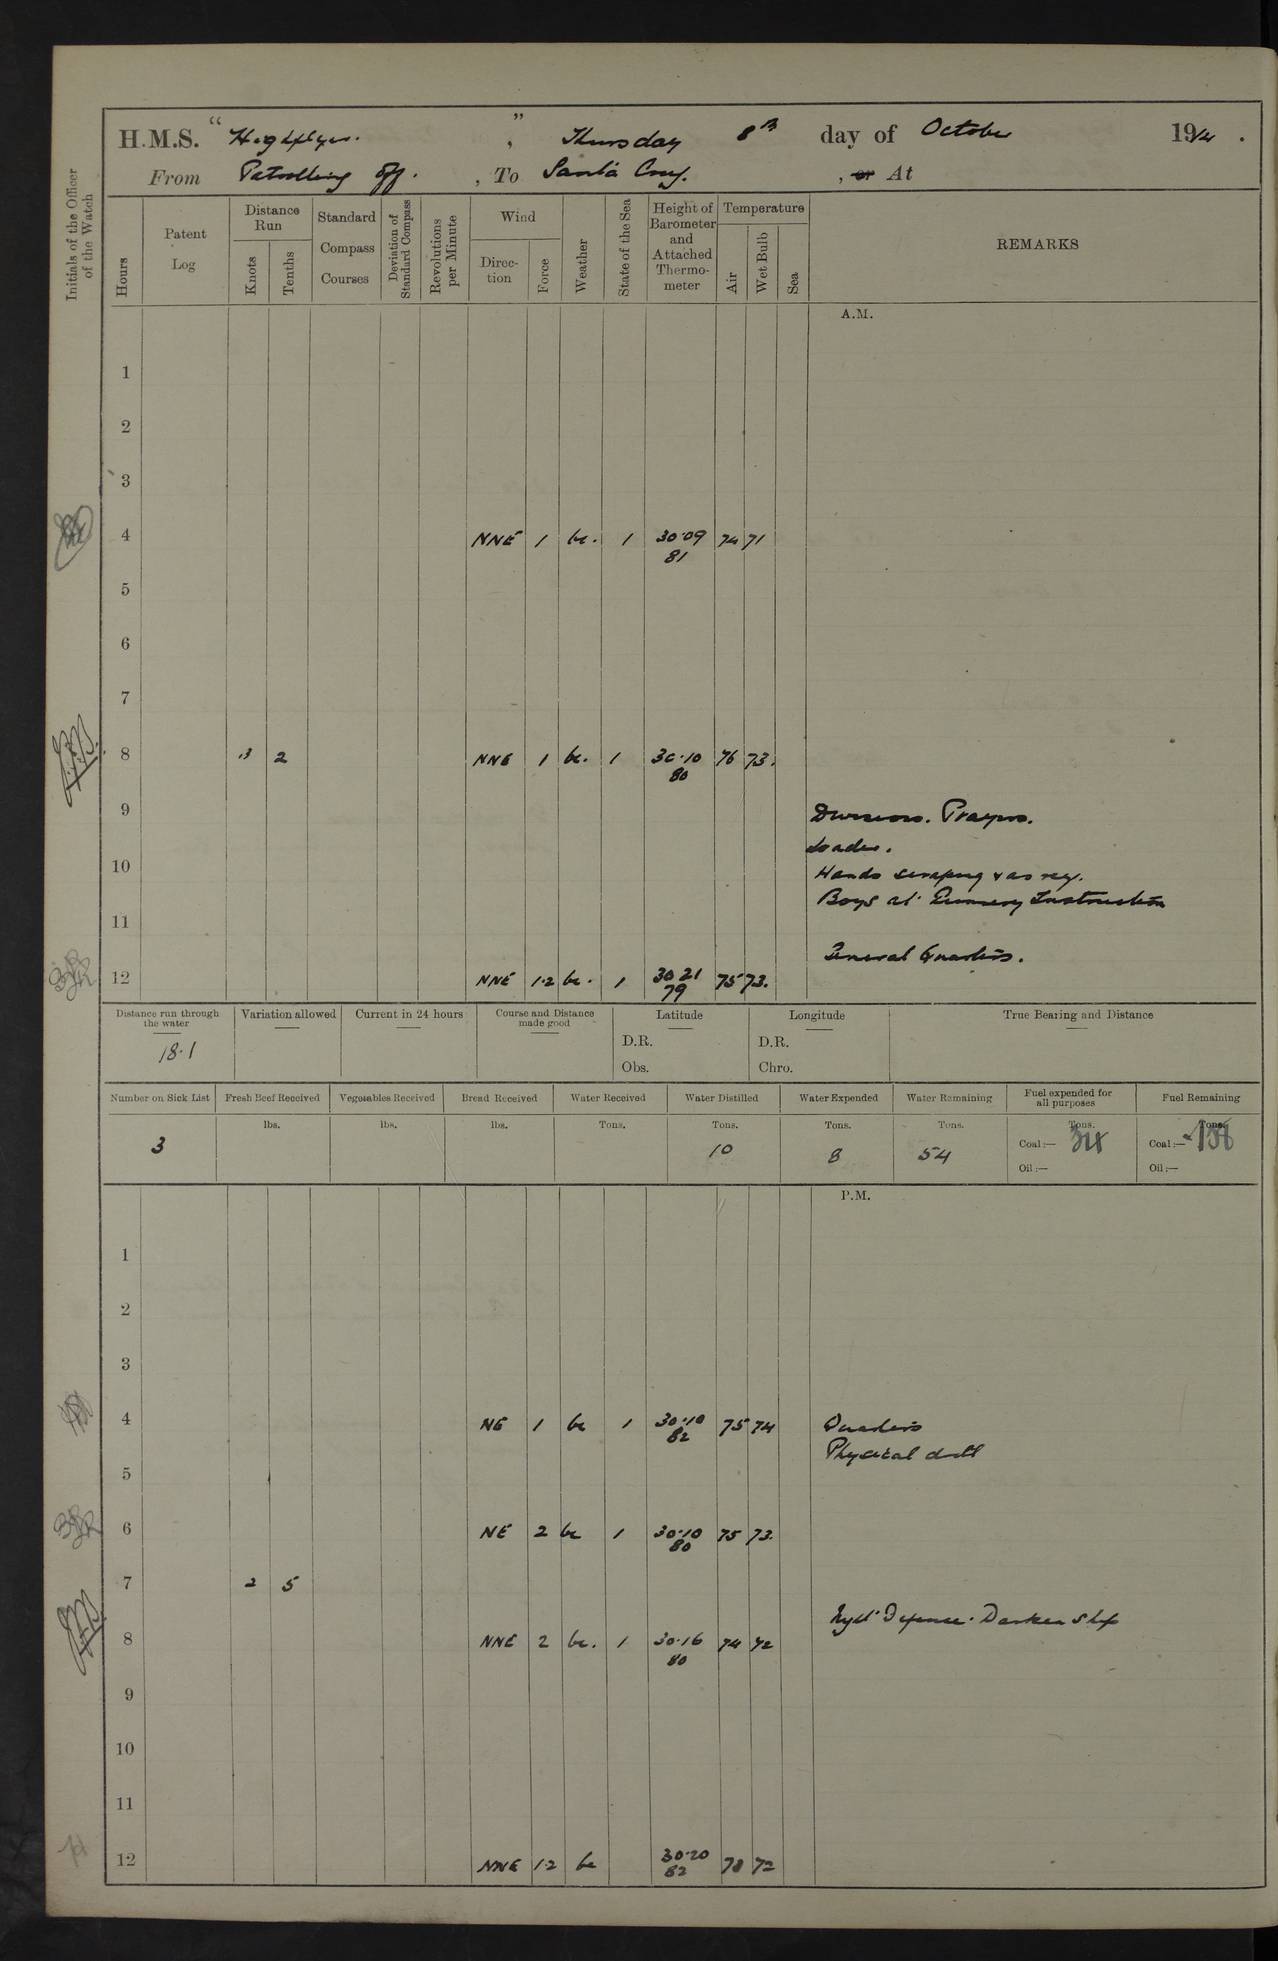 H.M.S. "Highflyer." , Thursday 8th day of October 1914.
From Patrolling off. , To Santa Cruz. , or At
Initials of the Officer of the Watch
Hours
Patent Log
Distance Run
Knots
Tenths
Standard Compass Courses
Deviation of Standard Compass
Revolutions per Minute
Wind
Direction
Force
Weather
State of the Sea
Height of Barometer and Attached Thermometer
Temperature
Air
Wet Bulb
Sea
REMARKS
A.M.
1
2
3
4 NNE 1 bc. 1 30.09 74 71
81
5
6
7
8 3 2 NNE 1 bc. 1 30.10 76 73.
80
9 Divisions. Prayers.
Loader.
10 Hands scraping & as req.
Boys at Gunnery Instruction
11
General Quarters.
12 NNE 1.2 bc. 1 30 21 75 73.
79
Distance run through the water
18.1
Variation allowed
Current in 24 hours
Course and Distance made good
Latitude
D.R.
Obs.
Longitude
D.R.
Chro.
True Bearing and Distance
Number on Sick List
3
Fresh Beef Received
lbs.
Vegetables Received
lbs.
Bread Received
lbs.
Water Received
Tons.
Water Distilled
Tons.
10
Water Expended
Tons.
8
Water Remaining
Tons.
54
Fuel expended for all purposes
Tons.
Coal:—
Oil:—
Fuel Remaining
Tons.
Coal:—
Oil:—
P.M.
1
2
3
4 NE 1 bc 1 30.10 75 74 Quarters
82
Physical drill
5
6 NE 2 bc 1 30.10 75 73.
80
7 2 5
Night Defence. Darken Ship
8 NNE 2 bc. 1 30.16 74 72
80
9
10
11
12 NNE 1.2 bc 30.20 72
82